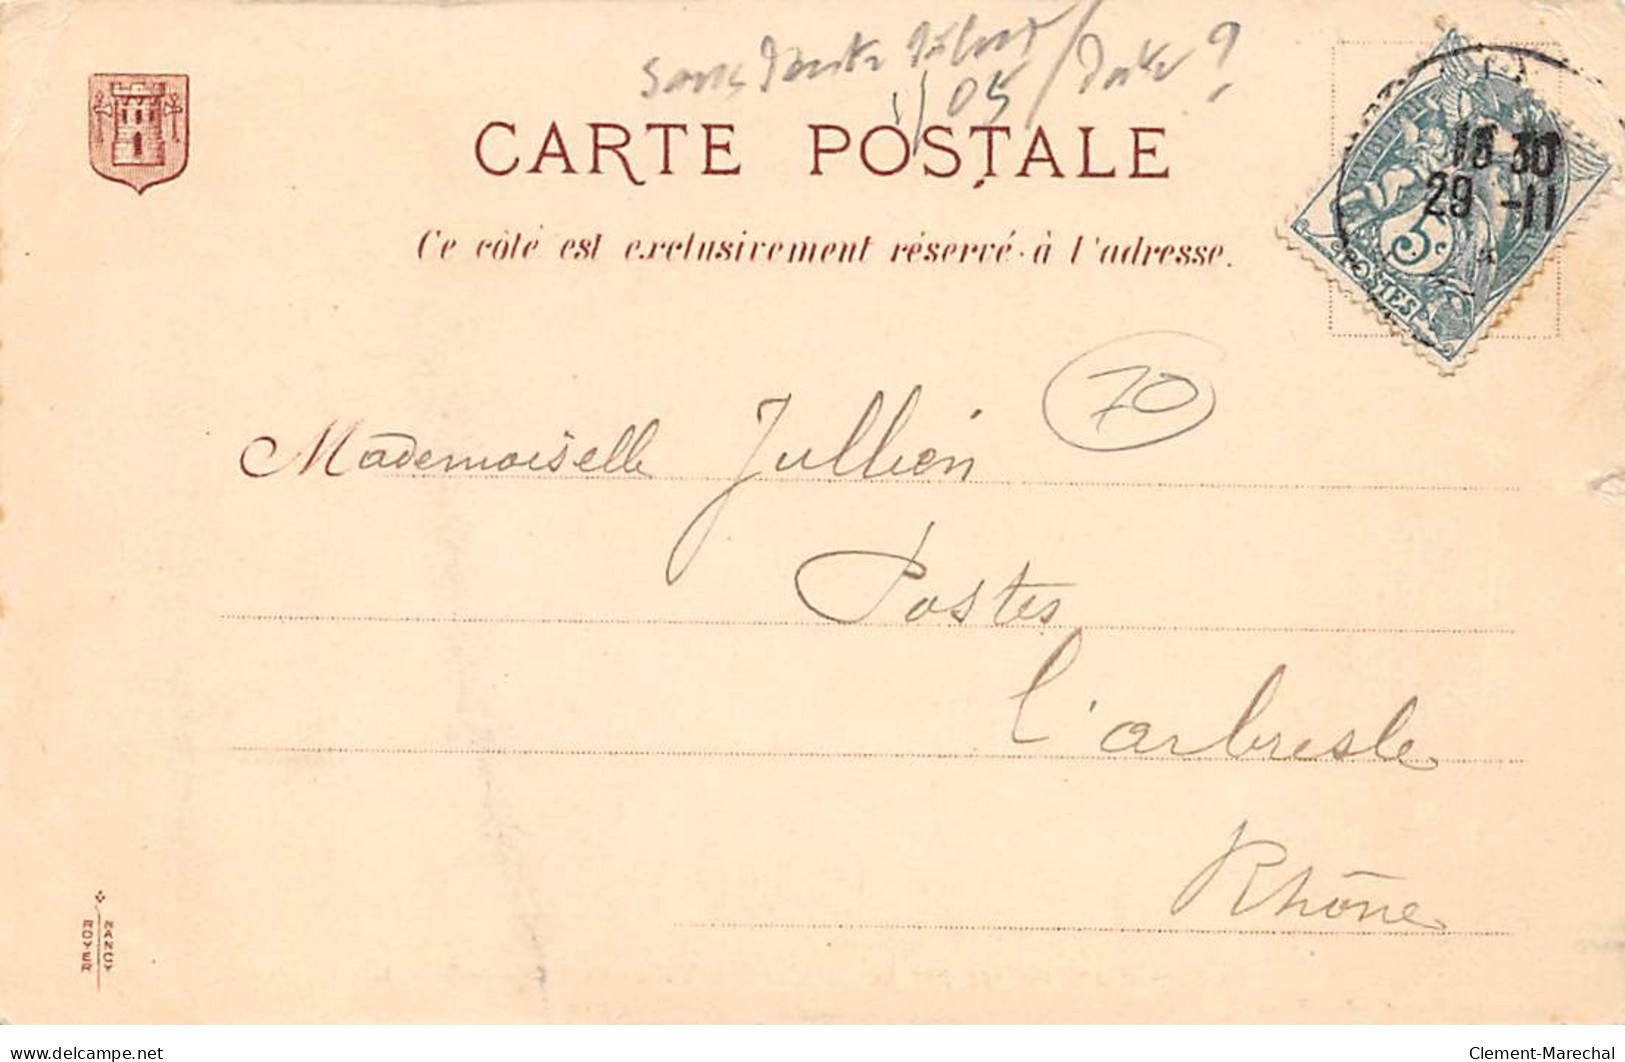 Sans doute début / Date ?
1/05
CARTE POSTALE
Ce côté est exclusivement réservé à l'adresse.
15 30
29 -11
5c
POSTES
70
Mademoiselle Jullien
Postes
l'arbresle
Rhône
ROYER
NANCY
delcampe.net
Clement-Marechal